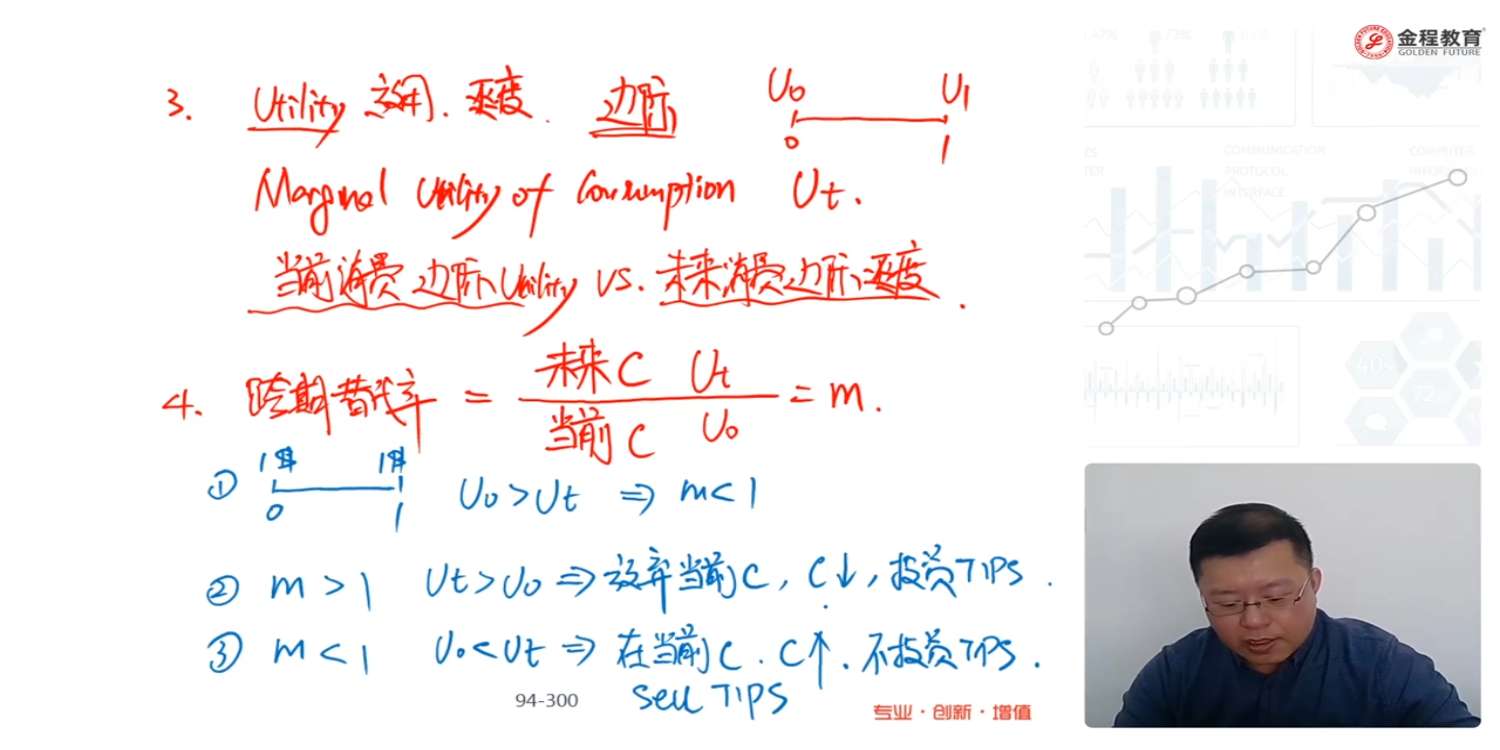 金程教育
GOLDEN FUTURE
3. Utility 效用. 满意度. 边际 U₀ U₁
0 1
Marginal Utility of Consumption Ut.
当前消费边际Utility VS. 未来消费边际满意度.
4. 跨期替代率 = 未来C Ut / 当前C U₀ = m.
1单 1单
① 0 1 U₀ > Ut ⇒ m < 1
② m > 1 Ut > U₀ ⇒ 放弃当前C, C↓, 投资TIPS.
③ m < 1 U₀ < Ut ⇒ 在当前C. C↑. 不投资TIPS.
sell TIPS
94-300
专业·创新·增值
COMMUNICATION
PROTOCOL
INTERFACE